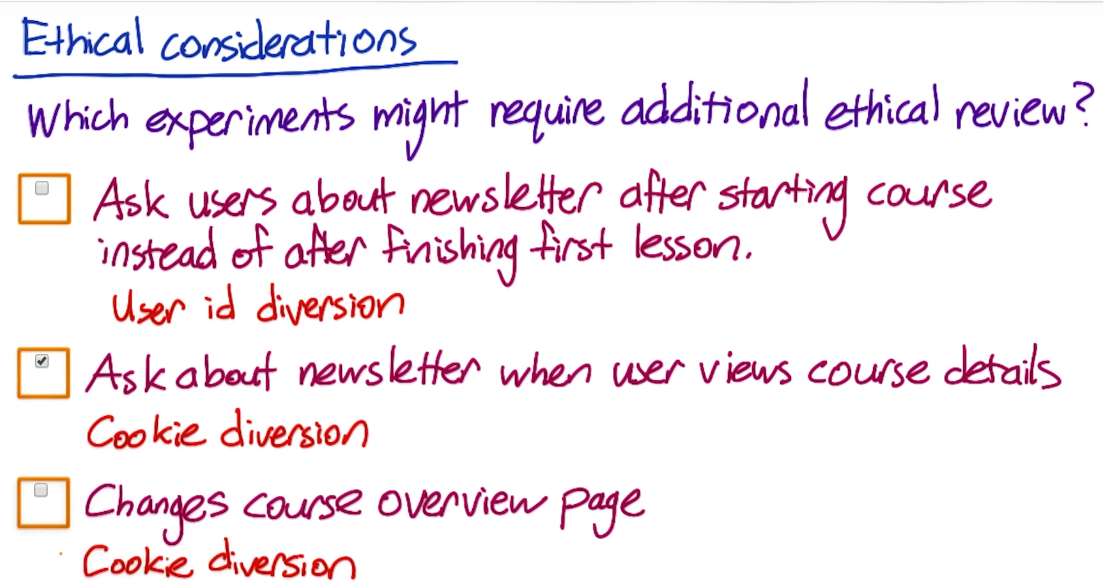 Ethical considerations
Which experiments might require additional ethical review?
Ask users about newsletter after starting course
instead of after finishing first lesson.
User id diversion
Ask about newsletter when user views course details
Cookie diversion
Changes course overview page
Cookie diversion